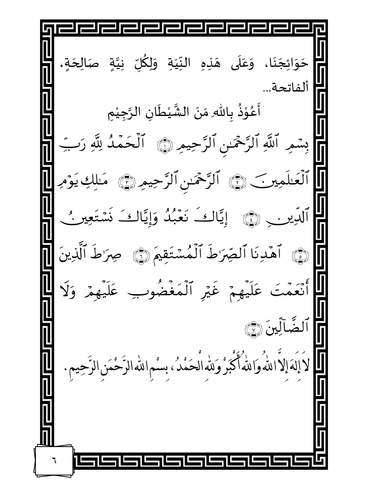 حَوَائِجَنَا، وَعَلَى هَذِهِ النِّيَةِ وَلِكُلِّ نِيَّةٍ صَالِحَةٍ،
الفاتحة...
أَعُوْذُ بِاللهِ مَنَ الشَّيْطَانِ الرَّجِيْمِ
بِسْمِ ٱللَّهِ ٱلرَّحْمَـٰنِ ٱلرَّحِيمِ ۝١ ٱلْحَمْدُ لِلَّهِ رَبِّ
ٱلْعَـٰلَمِينَ ۝٢ ٱلرَّحْمَـٰنِ ٱلرَّحِيمِ ۝٣ مَـٰلِكِ يَوْمِ
ٱلدِّينِ ۝٤ إِيَّاكَ نَعْبُدُ وَإِيَّاكَ نَسْتَعِينُ
۝٥ ٱهْدِنَا ٱلصِّرَٰطَ ٱلْمُسْتَقِيمَ ۝٦ صِرَٰطَ ٱلَّذِينَ
أَنْعَمْتَ عَلَيْهِمْ غَيْرِ ٱلْمَغْضُوبِ عَلَيْهِمْ وَلَا
ٱلضَّآلِّينَ ۝٧
لاَ إِلَهَ إِلاَّ اللهُ وَاللهُ أَكْبَرْ وَللهِ الْحَمْدُ، بِسْمِ اللهِ الرَّحْمَنِ الرَّحِيمِ.
٦